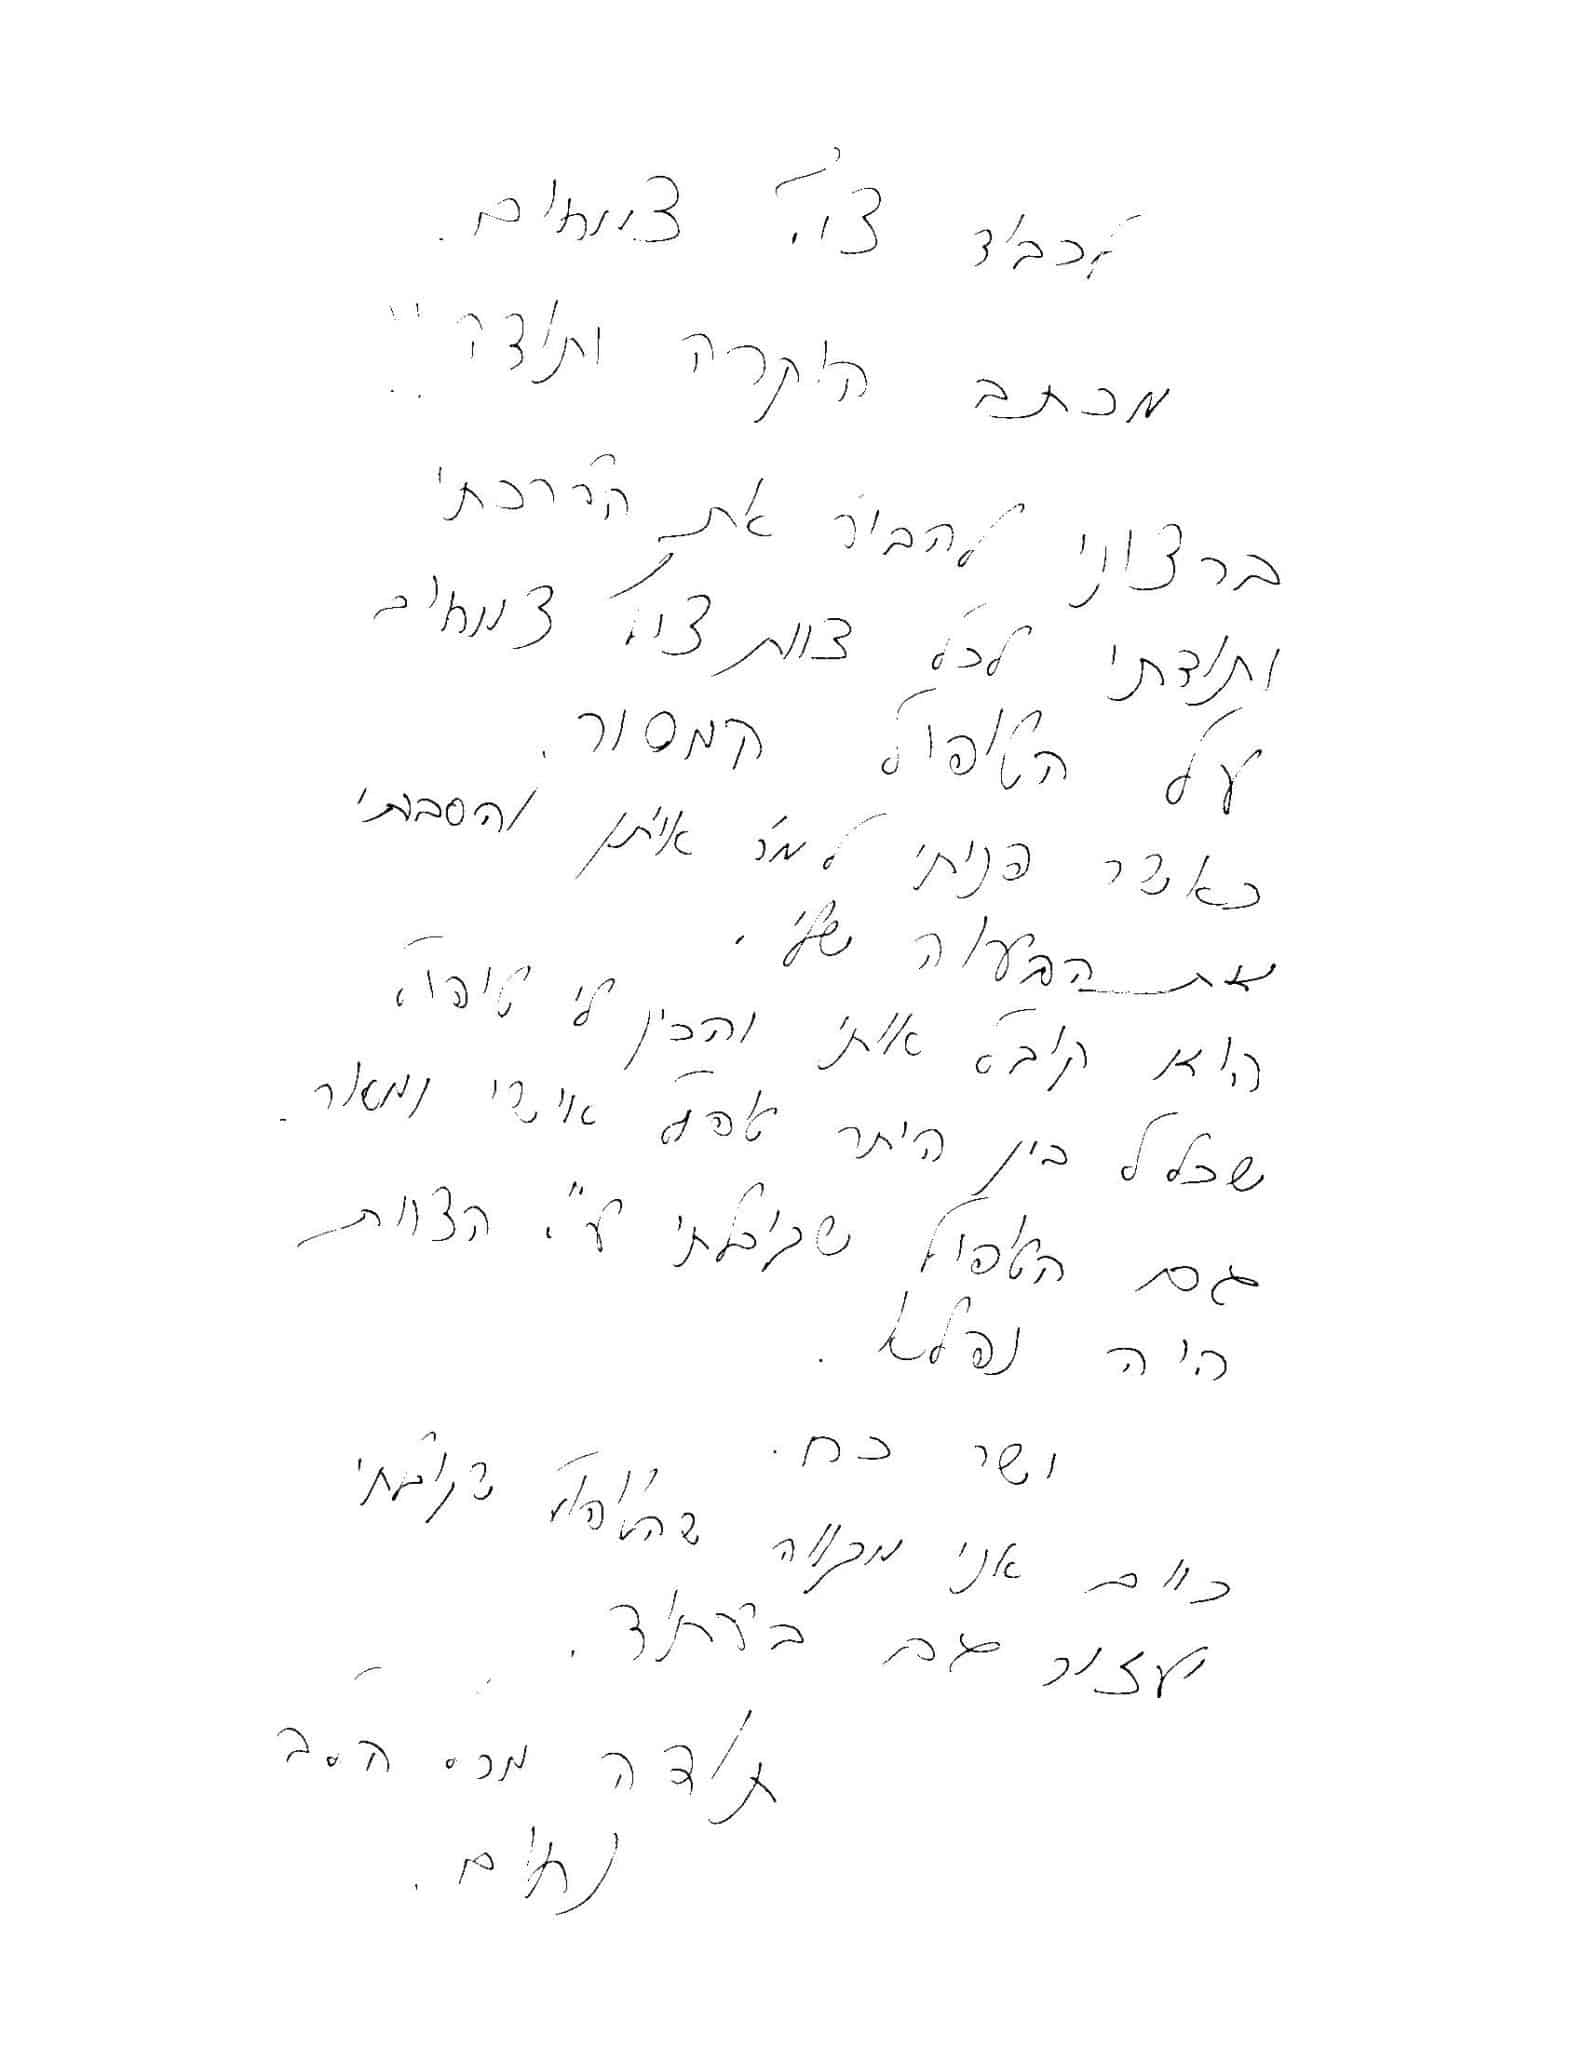 לכבוד צרי צמחים.
מכתב הוקרה ותודה"
ברצוני להביע את הערכתי
ותודתי לכל צוות צרי צמחים
על הטיפול המסור.
כאשר פניתי למר איתן והסברתי
את הבעיה שלי.
הוא קיבל אותי והכין לי טיפול
שכלל בין היתר טיפול אישי ומסור.
גם הטיפול שקיבלתי ע"י הצוות
היה נפלא.
ישר כח.
כיום אני מקווה שהטיפול שקיבלתי
יעזור גם בעתיד.
תודה מכל הלב
נחום.